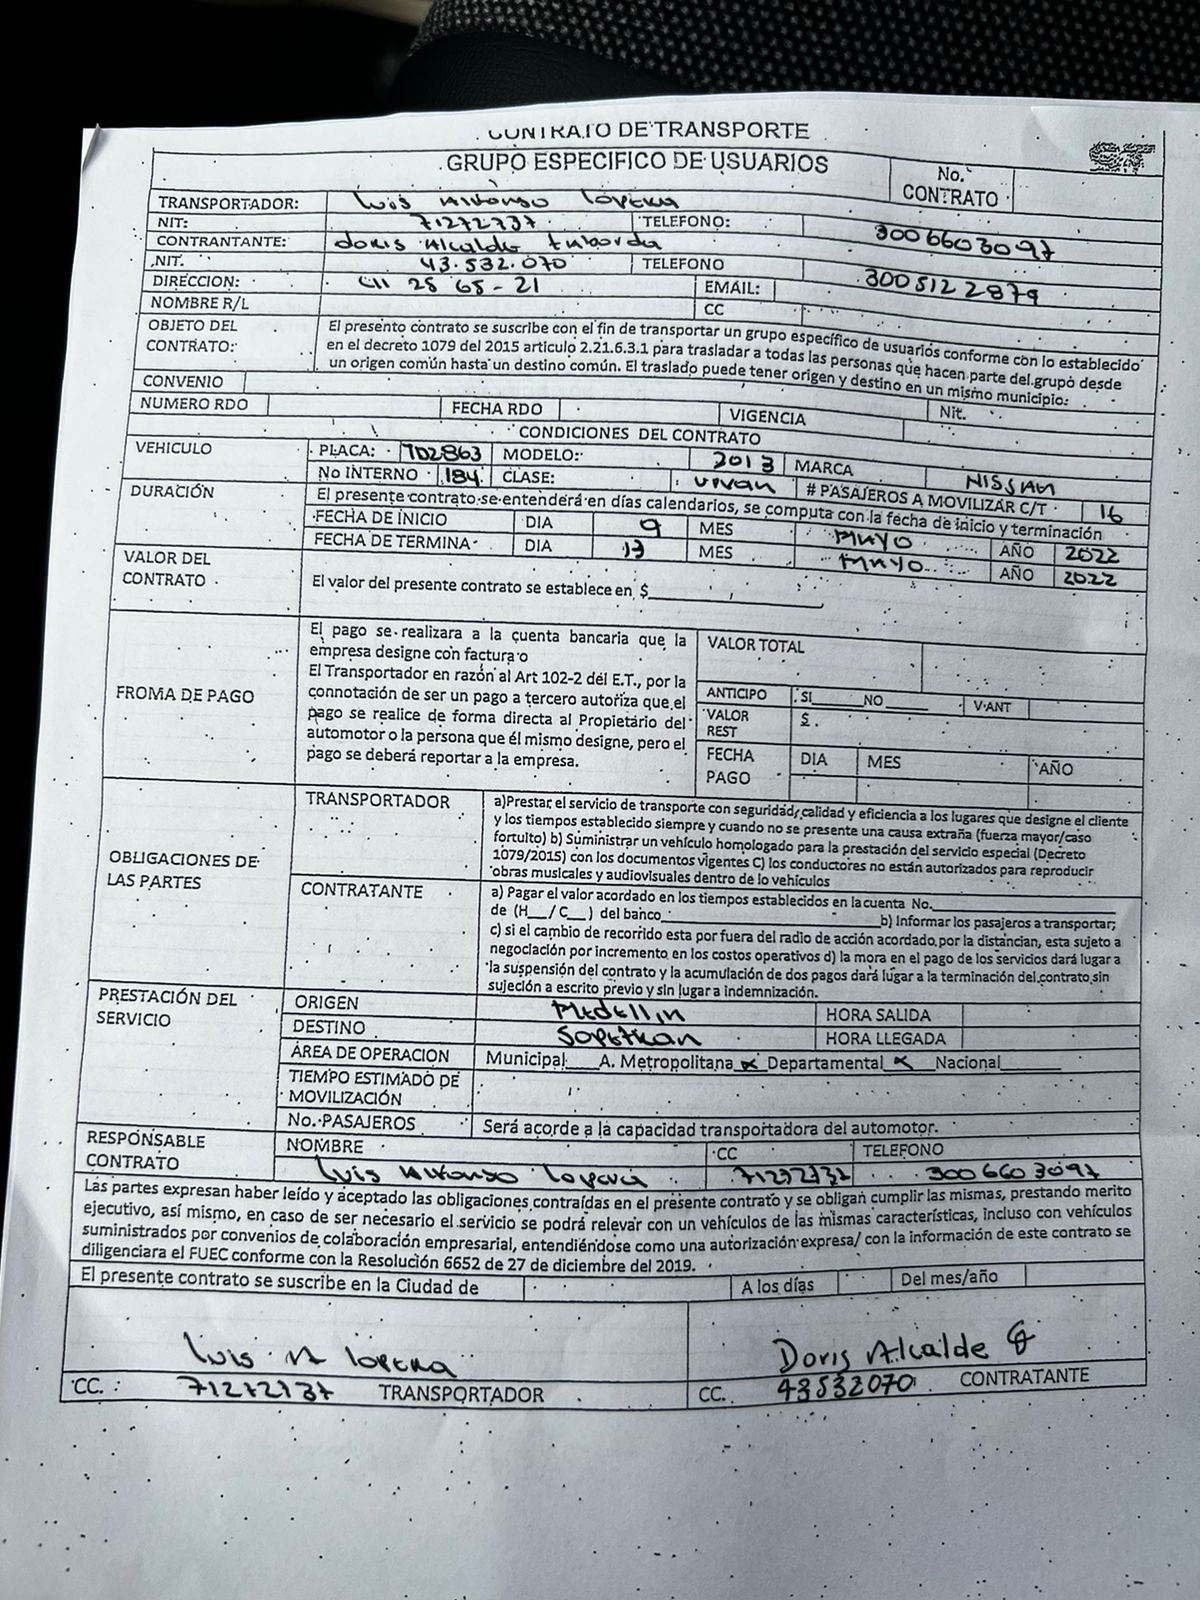 CONTRATO DE TRANSPORTE
GRUPO ESPECIFICO DE USUARIOS
No. CONTRATO
TRANSPORTADOR: Luis Alfonso Lopera
NIT: 71272737 TELEFONO: 3006603097
CONTRANTANTE: doris Alcalde
NIT. 43.532.070 TELEFONO 3005122879
DIRECCION: Cll 25 65-21 EMAIL:
NOMBRE R/L CC
OBJETO DEL CONTRATO: El presento contrato se suscribe con el fin de transportar un grupo específico de usuarios conforme con lo establecido
en el decreto 1079 del 2015 articulo 2.21.6.3.1 para trasladar a todas las personas que hacen parte del grupo desde
un origen común hasta un destino común. El traslado puede tener origen y destino en un mismo municipio:
CONVENIO
NUMERO RDO FECHA RDO VIGENCIA Nit.
CONDICIONES DEL CONTRATO
VEHICULO PLACA: TD2863 MODELO: 2013 MARCA NISSAN
No INTERNO 184 CLASE: # PASAJEROS A MOVILIZAR C/T 16
DURACIÓN El presente contrato se entenderá en días calendarios, se computa con la fecha de inicio y terminación
FECHA DE INICIO DIA 9 MES MAYO AÑO 2022
FECHA DE TERMINA DIA 13 MES MAYO AÑO 2022
VALOR DEL CONTRATO El valor del presente contrato se establece en $
FROMA DE PAGO El pago se realizara a la cuenta bancaria que la
empresa designe con factura o
El Transportador en razón al Art 102-2 del E.T., por la
connotación de ser un pago a tercero autoriza que el
pago se realice de forma directa al Propietário del
automotor o la persona que él mismo designe, pero el
pago se deberá reportar a la empresa.
VALOR TOTAL
ANTICIPO SI____NO____ V·ANT
VALOR REST $.
FECHA PAGO DIA MES AÑO
OBLIGACIONES DE LAS PARTES
TRANSPORTADOR a)Prestar el servicio de transporte con seguridad, calidad y eficiencia a los lugares que designe el cliente
y los tiempos establecido siempre y cuando no se presente una causa extraña (fuerza mayor/caso
fortuito) b) Suministrar un vehículo homologado para la prestación del servicio especial (Decreto
1079/2015) con los documentos vigentes C) los conductores no están autorizados para reproducir
obras musicales y audiovisuales dentro de lo vehículos
CONTRATANTE a) Pagar el valor acordado en los tiempos establecidos en la cuenta No.
de (H__/ C__ ) del banco____ b) Informar los pasajeros a transportar;
c) si el cambio de recorrido esta por fuera del radio de acción acordado por la distancian, esta sujeto a
negociación por incremento en los costos operativos d) la mora en el pago de los servicios dará lugar a
la suspensión del contrato y la acumulación de dos pagos dará lugar a la terminación del contrato sin
sujeción a escrito previo y sin lugar a indemnización.
PRESTACIÓN DEL SERVICIO
ORIGEN Medellin HORA SALIDA
DESTINO Sopetran HORA LLEGADA
ÁREA DE OPERACION Municipal____A. Metropolitana x Departamental x Nacional____
TIEMPO ESTIMADO DE MOVILIZACIÓN
No. PASAJEROS Será acorde a la capacidad transportadora del automotor.
RESPONSABLE CONTRATO NOMBRE CC TELEFONO
Luis Alfonso Lopera 3006603097
Las partes expresan haber leído y aceptado las obligaciones contraídas en el presente contrato y se obligan cumplir las mismas, prestando merito
ejecutivo, así mismo, en caso de ser necesario el servicio se podrá relevar con un vehículos de las mismas características, incluso con vehículos
suministrados por convenios de colaboración empresarial, entendiéndose como una autorización expresa/ con la información de este contrato se
diligenciara el FUEC conforme con la Resolución 6652 de 27 de diciembre del 2019.
El presente contrato se suscribe en la Ciudad de A los días Del mes/año
Luis A Lopera Doris Alcalde
CC. : 71272737 TRANSPORTADOR CC. 43532070 CONTRATANTE